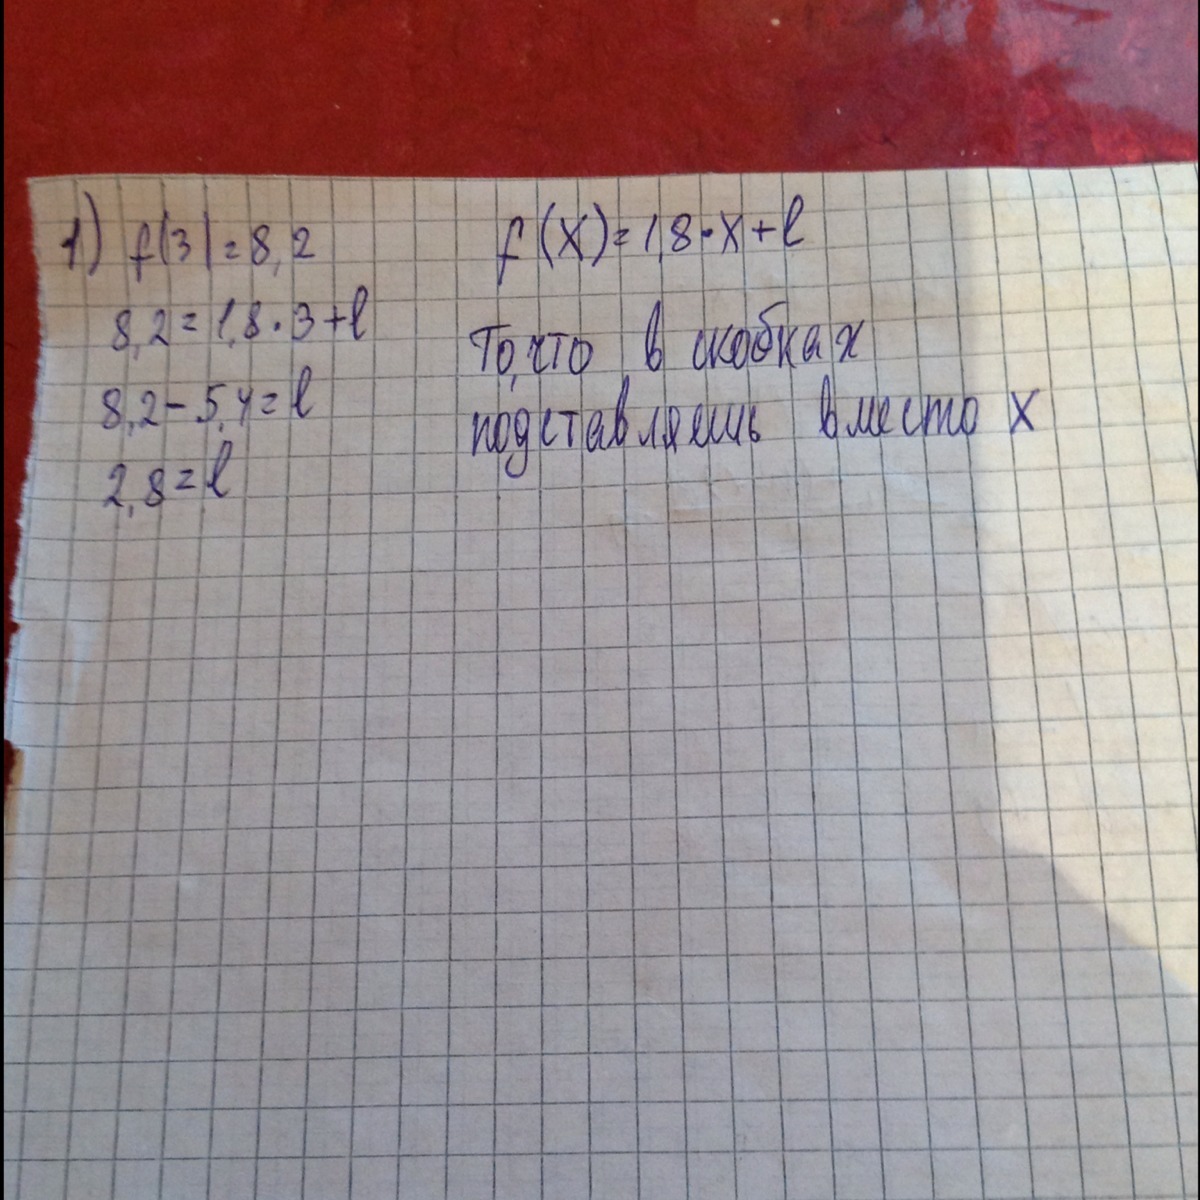 1) f(3)=8,2
8,2=1,8·3+l
8,2-5,4=l
2,8=l
f(x)=1,8·x+l
То,что в скобках
подставляешь вместо x